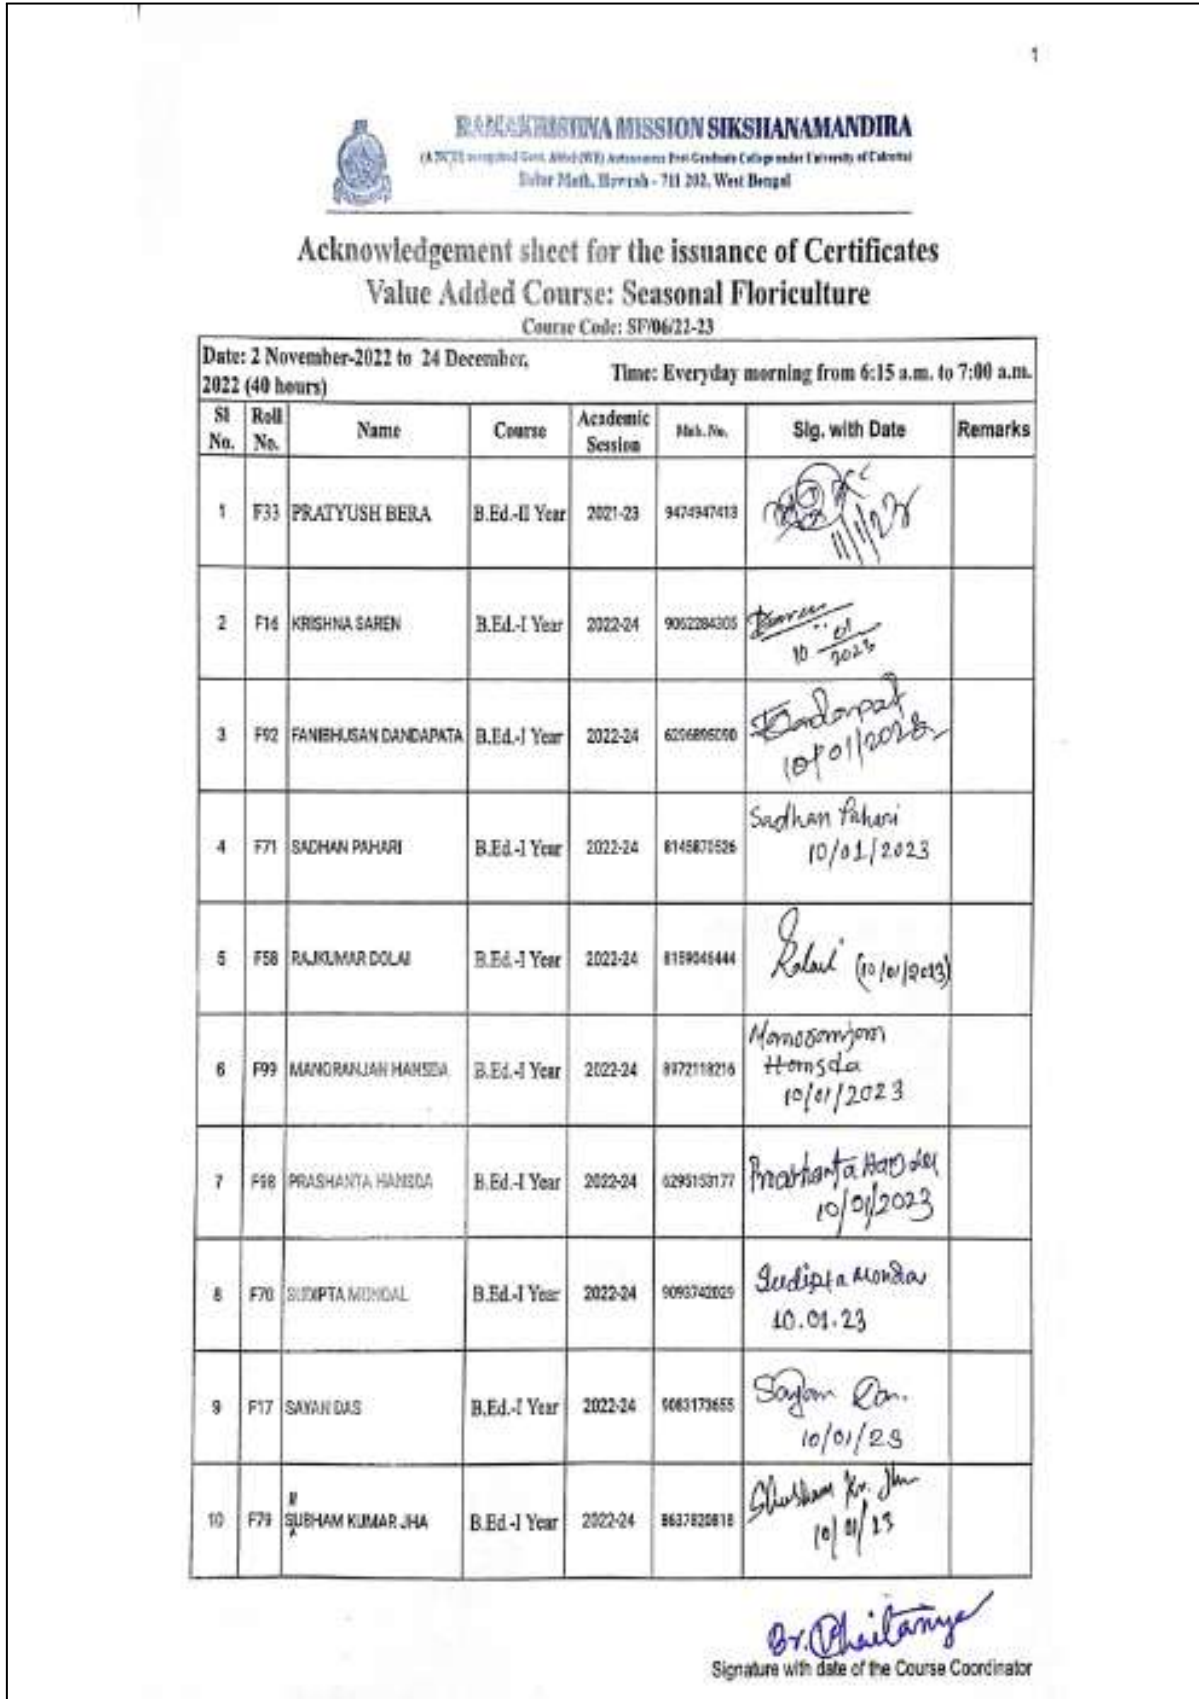 1
RAMAKRISHNA MISSION SIKSHANAMANDIRA
(A NCTE recognised Govt. Aided (WB) Autonomous Post-Graduate College under University of Calcutta)
Belur Math, Howrah - 711 202, West Bengal
Acknowledgement sheet for the issuance of Certificates
Value Added Course: Seasonal Floriculture
Course Code: SF/06/22-23
Date: 2 November-2022 to 24 December, 2022 (40 hours) Time: Everyday morning from 6:15 a.m. to 7:00 a.m.
Sl No. Roll No. Name Course Academic Session Mob. No. Sig. with Date Remarks
1 F33 PRATYUSH BERA B.Ed.-II Year 2021-23 9474947413 11/1/23
2 F16 KRISHNA SAREN B.Ed.-I Year 2022-24 9062284305 Saren 10 01/2023
3 F92 FANIBHUSAN DANDAPATA B.Ed.-I Year 2022-24 Dandapat 10/01/2023
4 F71 SADHAN PAHARI B.Ed.-I Year 2022-24 8145870526 Sadhan Pahari 10/01/2023
5 F58 RAJKUMAR DOLAI B.Ed.-I Year 2022-24 8159046444 (10/01/2023)
6 F99 MANORANJAN HANSDA B.Ed.-I Year 2022-24 8972118216 Manoranjan Hansda 10/01/2023
7 F98 PRASHANTA HANSDA B.Ed.-I Year 2022-24 6295153177 Prashanta Hansda 10/01/2023
8 F70 SUDIPTA MONDAL B.Ed.-I Year 2022-24 9093742029 Sudipta Mondal 10.01.23
9 F17 SAYAN DAS B.Ed.-I Year 2022-24 9083173655 Sayan Das. 10/01/23
10 F79 SUBHAM KUMAR JHA B.Ed.-I Year 2022-24 8637820818 Shubham Kr. Jha 10/01/23
Br. Chaitanya
Signature with date of the Course Coordinator